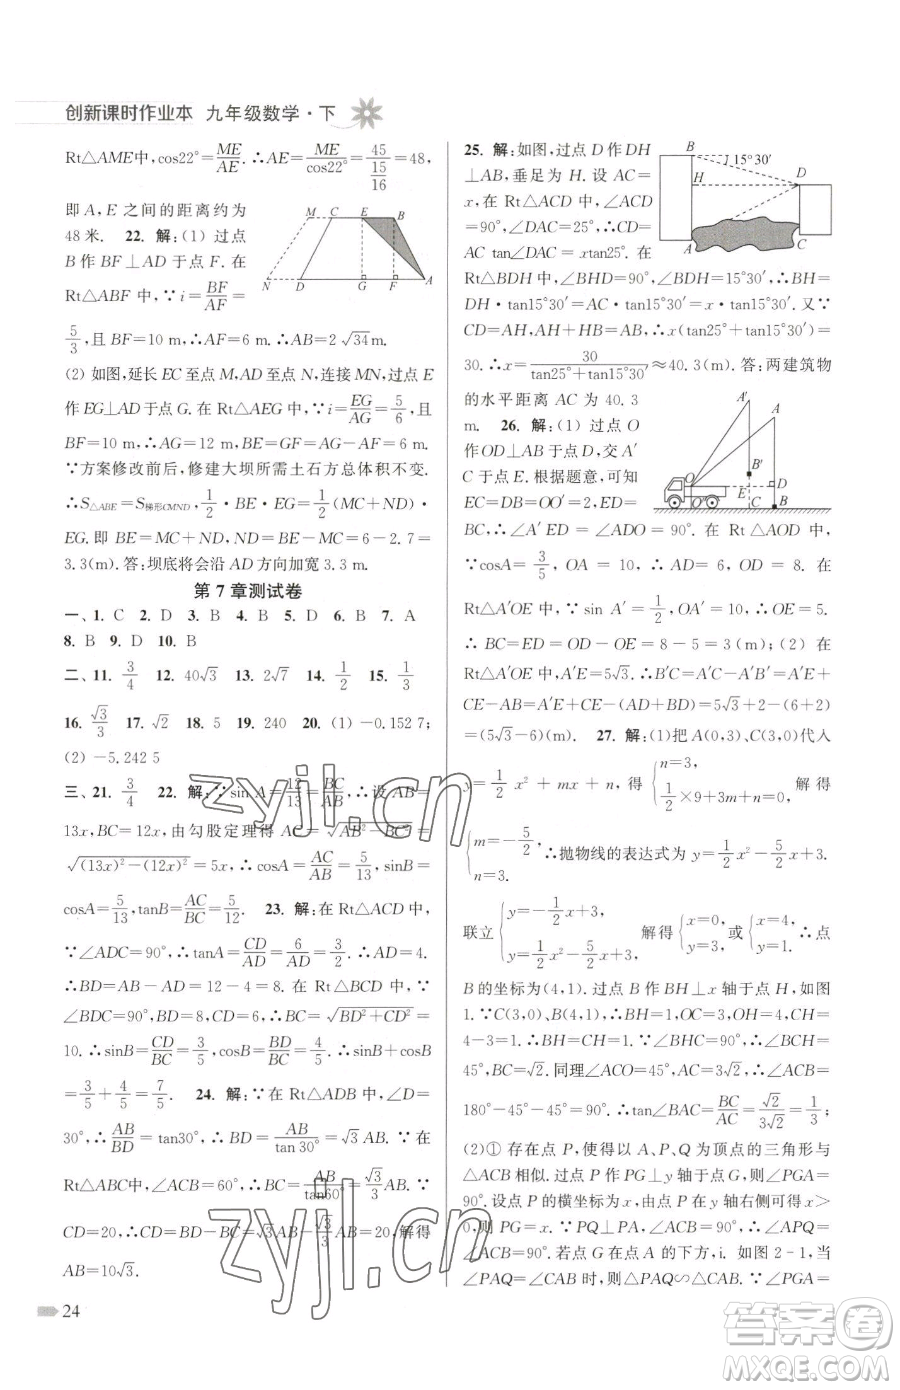 创新课时作业本 九年级数学·下
Rt△AME中,cos22°=ME/AE.∴AE=ME/cos22°=45/(15/16)=48,
即 A,E 之间的距离约为
48米. 22. 解:(1) 过点
B作 BF⊥AD 于点 F. 在
Rt△ABF 中,∵i=BF/AF=
5/3,且 BF=10 m,∴AF=6 m.∴AB=2√34 m.
(2) 如图,延长EC至点M,AD至点N,连接MN,过点E
作EG⊥AD于点G. 在 Rt△AEG 中,∵i=EG/AG=5/6,且
BF=10 m,∴AG=12 m,BE=GF=AG-AF=6 m.
∵方案修改前后,修建大坝所需土石方总体积不变.
∴S△ABE=S梯形CMND,1/2·BE·EG=1/2(MC+ND)·
EG. 即 BE=MC+ND,∴ND=BE-MC=6-2.7=
3.3(m). 答:坝底将会沿 AD 方向加宽 3.3 m.
M C E B
N D G F A
第7章测试卷
一、1. C 2. D 3. B 4. B 5. D 6. D 7. A
8. B 9. D 10. B
二、11. 3/4 12. 40√3 13. 2√7 14. 1/2 15. 1/3
16. √3/3 17. √2 18. 5 19. 240 20. (1) -0.152 7;
(2) -5.242 5
三、21. 3/4 22. 解:∵sin A=12/13=BC/AB,∴设AB=
13x,BC=12x,由勾股定理得 AC=√(AB²-BC²)=
√((13x)²-(12x)²)=5x,∴cosA=AC/AB=5/13,sinB=
cosA=5/13,tanB=AC/BC=5/12. 23. 解:在 Rt△ACD 中,
∵∠ADC=90°,∴tanA=CD/AD=6/AD=3/2.∴AD=4.
∴BD=AB-AD=12-4=8. 在 Rt△BCD 中,
∵∠BDC=90°,BD=8,CD=6,∴BC=√(BD²+CD²)=
10.∴sinB=CD/BC=3/5,cosB=BD/BC=4/5.∴sinB+cosB
=3/5+4/5=7/5. 24. 解:∵在 Rt△ADB 中,∠D=
30°,∴AB/BD=tan30°,∴BD=AB/tan 30°=√3AB. ∵在
Rt△ABC中,∠ACB=60°,∴BC=AB/tan60°=√3/3AB. ∵
CD=20,∴CD=BD-BC=√3AB-√3/3AB=20,解得
AB=10√3.
24
25. 解:如图,过点 D 作 DH
⊥AB,垂足为 H. 设 AC=
x,在 Rt△ACD 中,∠ACD
=90°,∠DAC=25°,∴CD=
AC tan∠DAC=xtan25°. 在
Rt△BDH 中,∠BHD=90°,∠BDH=15°30′,∴BH=
DH·tan15°30′=AC·tan15°30′=x·tan15°30′.又∵
CD=AH,AH+HB=AB,∴x(tan25°+tan15°30′)=
30.∴x=30/(tan25°+tan15°30′)≈40.3(m). 答:两建筑物
的水平距离 AC 为 40.3
m. 26. 解:(1) 过点 O
作OD⊥AB于点D,交A′
C于点 E. 根据题意,可知
EC=DB=OO′=2,ED=
BC,∴∠A′ED=∠ADO=90°. 在 Rt△AOD 中,
∵cosA=3/5,OA=10,∴AD=6,∴OD=8. 在
Rt△A′OE 中,∵sin A′=1/2,OA′=10.∴OE=5.
∴BC=ED=OD-OE=8-5=3(m);(2) 在
Rt△A′OE中,A′E=5√3.∴B′C=A′C-A′B′=A′E+
CE-AB=A′E+CE-(AD+BD)=5√3+2-(6+2)
=(5√3-6)(m). 27. 解:(1)把A(0,3),C(3,0)代入
y=1/2 x²+mx+n,得{n=3, 1/2×9+3m+n=0, 解得
{m=-5/2, n=3. ∴抛物线的表达式为y=1/2x²-5/2x+3.
联立{y=-1/2x+3, y=1/2x²-5/2x+3, 解得{x=0, y=3; 或{x=4, y=1. ∴点
B 的坐标为(4,1). 过点 B 作BH⊥x 轴于点 H,如图
1.∵C(3,0),B(4,1),∴BH=1,OC=3,OH=4,CH=
4-3=1.∴BH=CH=1.∵∠BHC=90°,∴∠BCH=
45°,BC=√2. 同理,∠ACO=45°,AC=3√2,∴∠ACB=
180°-45°-45°=90°,∴tan∠BAC=BC/AC=√2/3√2=1/3;
(2)① 存在点 P,使得以 A、P、Q 为顶点的三角形与
△ACB 相似. 过点 P 作PG⊥y 轴于点G,则∠PGA=
90°. 设点 P 的横坐标为x,由点 P 在y 轴右侧可得x>
0,则 PG=x. ∵PQ⊥PA,∠ACB=90°,∴∠APQ=
∠ACB=90°. 若点 G 在点 A 的下方,i. 如图 2-1,当
∠PAQ=∠CAB时,则△PAQ∽△CAB. ∵∠PGA=
B 15°30′ D
H
A C
A′ A
B′
O D
E
C B
zyjl.cn
zyjl.cn
答案圈
MXQE.COM